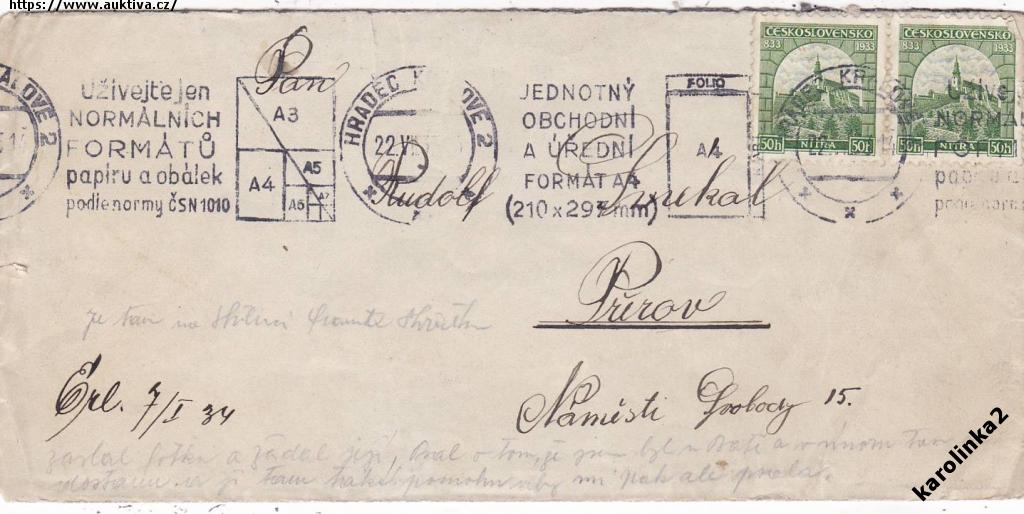 https://www.auktiva.cz/
ALOVE 2
Užívejte jen
NORMÁLNÍCH
FORMÁTŮ
papíru a obálek
podle normy ČSN 1010
A3
A4
A5
A6
A7
HRADEC KRÁLOVÉ 2
22.VI
JEDNOTNÝ
OBCHODNÍ
A ÚŘEDNÍ
FORMÁT A4
(210 x 297 mm)
FOLIO
A4
ČESKOSLOVENSKO
833 1933
50h NITRA 50h
ČESKOSLOVENSKO
833 1933
50h NITRA 50h
HRADEC KR
Užíve
NORMÁL
podle norm
Pan
Rudolf Smekal
Přerov
Náměstí Svobody 15.
je tam na
Erl. 7/I 34
zaslal fotku a žádal její, psal o tom, že jsem byl u
karolinka2